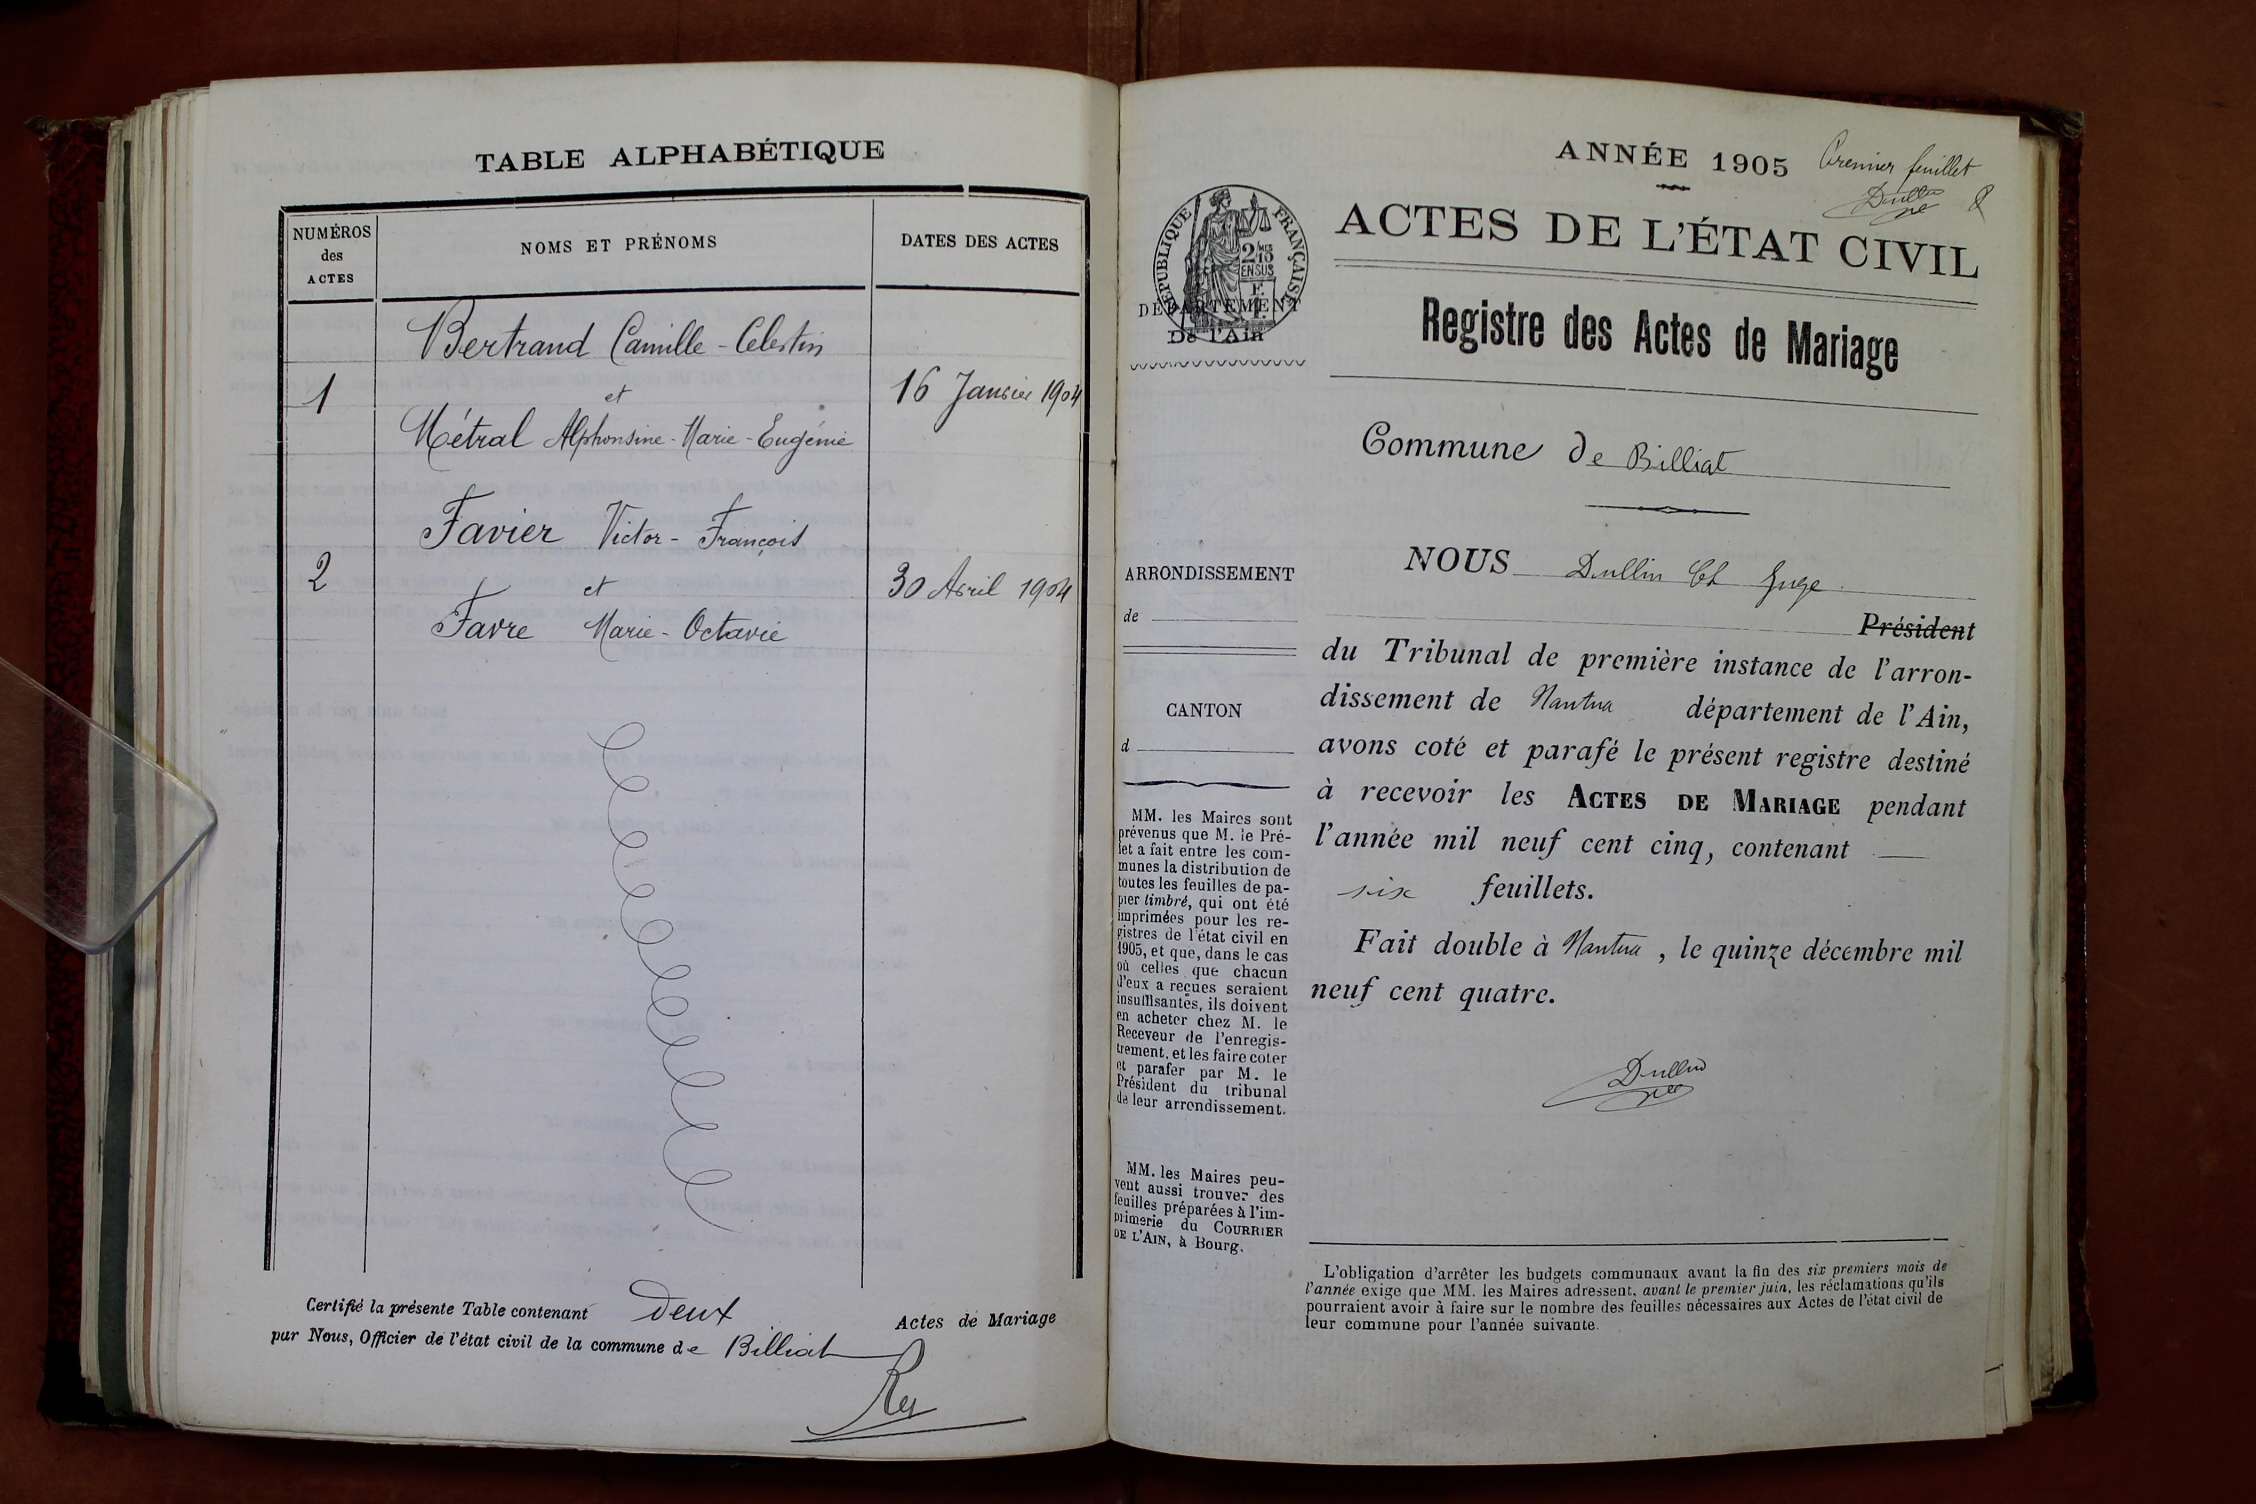 TABLE ALPHABÉTIQUE
NUMÉROS
des
ACTES
NOMS ET PRÉNOMS
DATES DES ACTES
Bertrand Camille-Celestin
1
et
16 Janvier 1904
Métral Alphonsine-Marie-Eugénie
Favier Victor-François
2
et
30 Avril 1904
Favre Marie-Octavie
Certifié la présente Table contenant deux Actes de Mariage
par Nous, Officier de l'état civil de la commune de Billiat
Rey
ANNÉE 1905
Premier feuillet
Dullin
ACTES DE L'ÉTAT CIVIL
RÉPUBLIQUE FRANÇAISE
2 MES 15
EN SUS
DÉPARTEMENT
De l'Ain
Registre des Actes de Mariage
Commune de Billiat
ARRONDISSEMENT
de
CANTON
d
MM. les Maires sont
prévenus que M. le Pré-
fet a fait entre les com-
munes la distribution de
toutes les feuilles de pa-
pier timbré, qui ont été
imprimées pour les re-
gistres de l'état civil en
1905, et que, dans le cas
où celles que chacun
d'eux a reçues seraient
insuffisantes, ils doivent
en acheter chez M. le
Receveur de l'enregis-
trement, et les faire coter
et parafer par M. le
Président du tribunal
de leur arrondissement.
MM. les Maires peu-
vent aussi trouver des
feuilles préparées à l'im-
primerie du COURRIER
DE L'AIN, à Bourg.
NOUS Dullin Ch Juge
Président
du Tribunal de première instance de l'arron-
dissement de Nantua département de l'Ain,
avons coté et parafé le présent registre destiné
à recevoir les ACTES DE MARIAGE pendant
l'année mil neuf cent cinq, contenant
six feuillets.
Fait double à Nantua, le quinze décembre mil
neuf cent quatre.
Dullin
L'obligation d'arrêter les budgets communaux avant la fin des six premiers mois de
l'année exige que MM. les Maires adressent, avant le premier juin, les réclamations qu'ils
pourraient avoir à faire sur le nombre des feuilles nécessaires aux Actes de l'état civil de
leur commune pour l'année suivante.